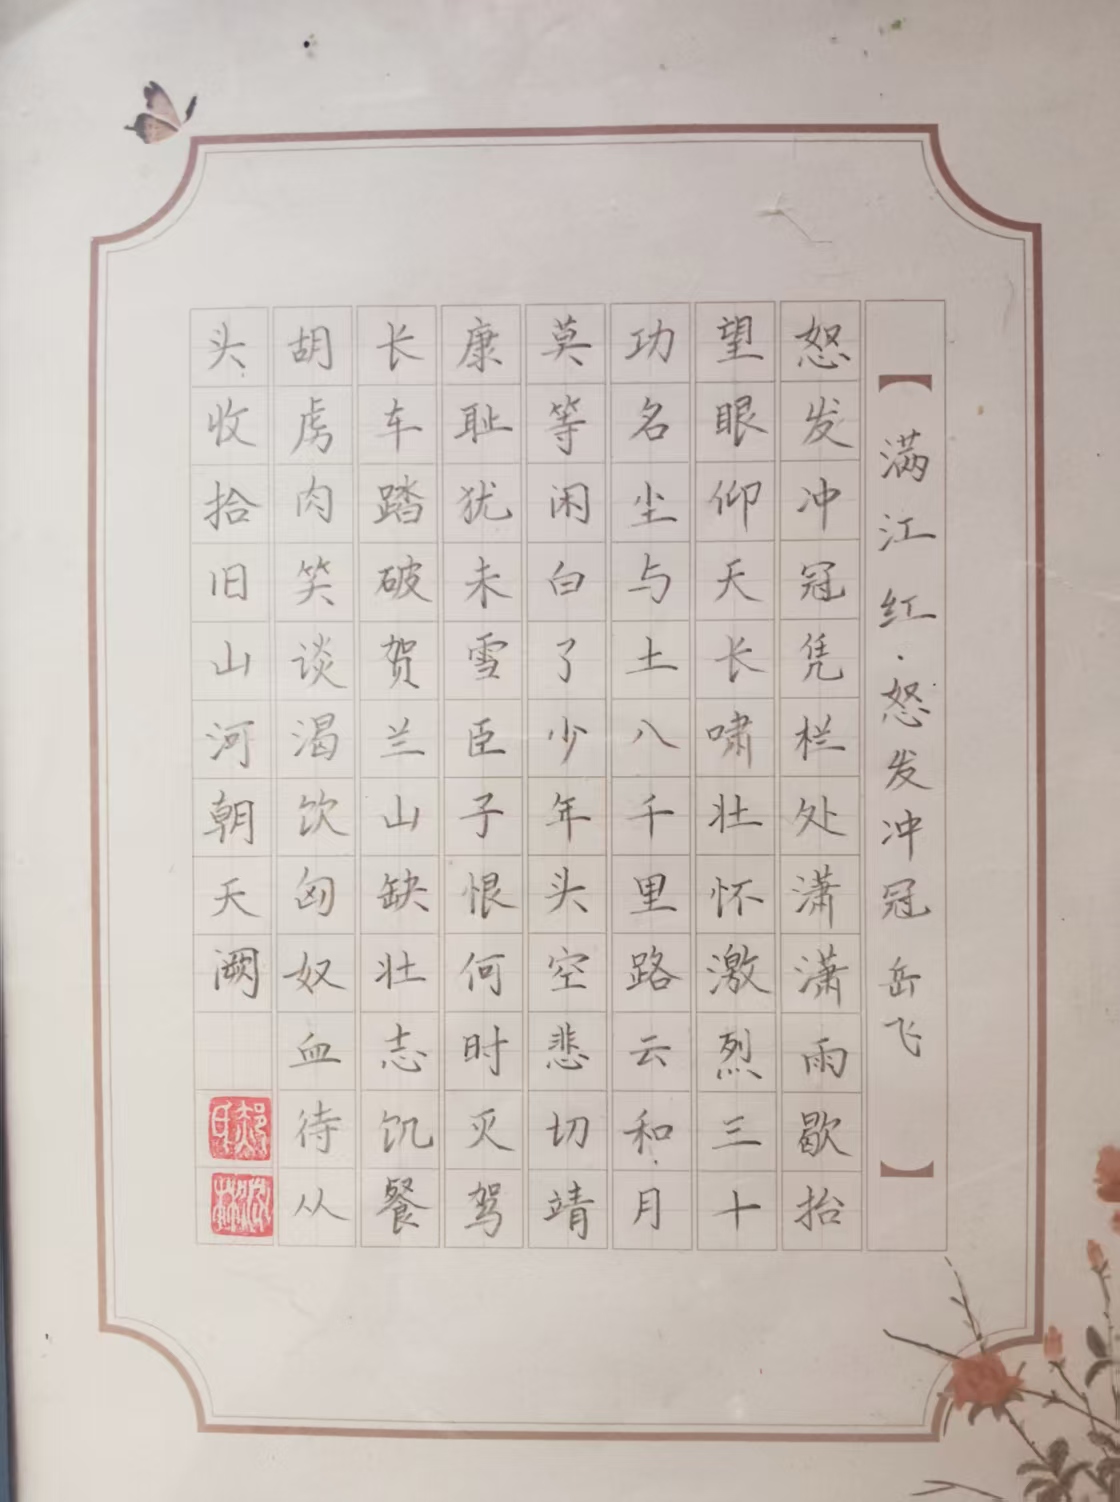 【满江红·怒发冲冠 岳飞】
怒发冲冠凭栏处潇潇雨歇抬
望眼仰天长啸壮怀激烈三十
功名尘与土八千里路云和月
莫等闲白了少年头空悲切靖
康耻犹未雪臣子恨何时灭驾
长车踏破贺兰山缺壮志饥餐
胡虏肉笑谈渴饮匈奴血待从
头收拾旧山河朝天阙